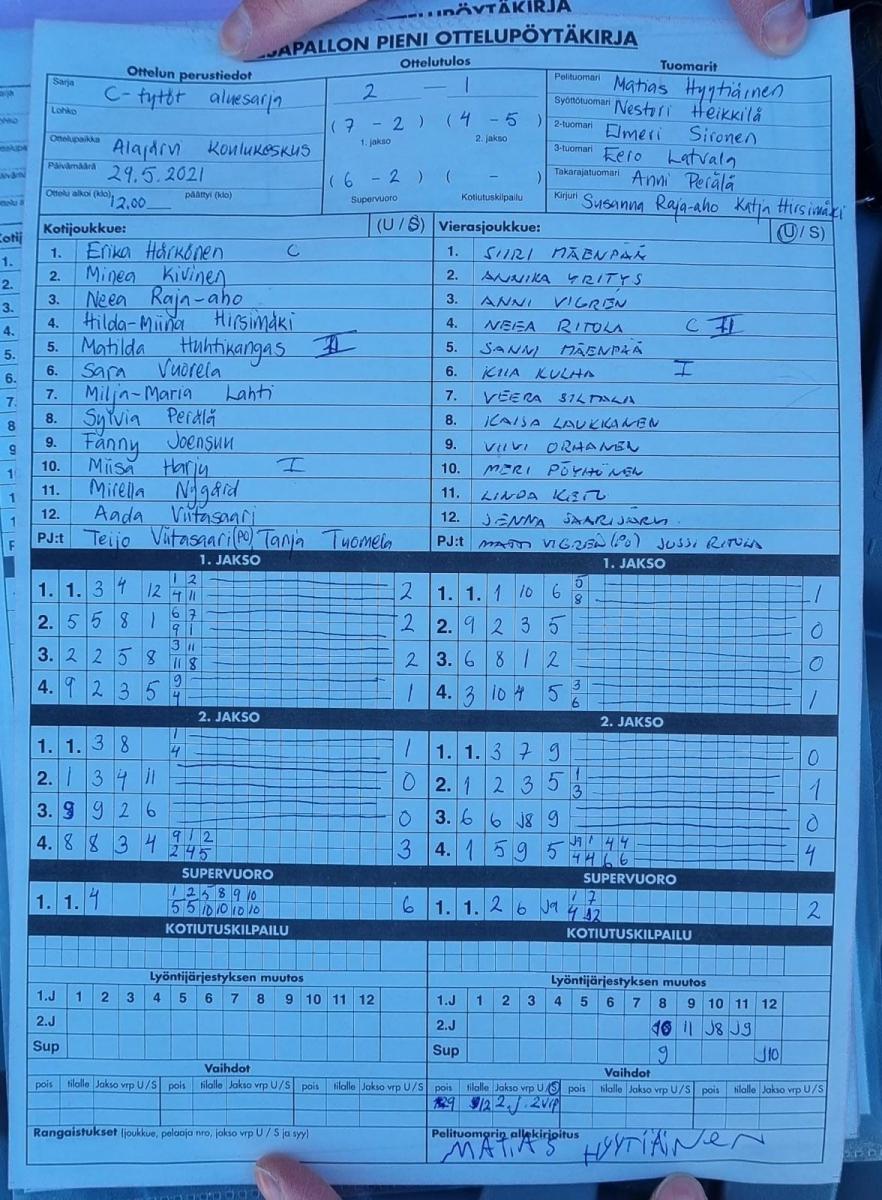 PÖYTÄKIRJA
SAPALLON PIENI OTTELUPÖYTÄKIRJA
Ottelun perustiedot
Sarja C-tytöt aluesarja
Lohko
Ottelupaikka Alajärvi Koulukeskus
Päivämäärä 29.5.2021
Ottelu alkoi (klo) 12.00 päättyi (klo)
Ottelutulos
2 — 1
(7 - 2) (4 - 5)
1. jakso 2. jakso
(6 - 2) ( - )
Supervuoro Kotiutuskilpailu
Tuomarit
Pelituomari Matias Hyytiäinen
Syöttötuomari Nestori Heikkilä
2-tuomari Elmeri Sironen
3-tuomari Eero Latvala
Takarajatuomari Anni Perälä
Kirjuri Susanna Raja-aho Katja Hirsimäki
Kotijoukkue: (U / S)
1. Erika Härkönen C
2. Minea Kivinen
3. Neea Raja-aho
4. Hilda-Miina Hirsimäki
5. Matilda Huhtikangas II
6. Sara Vuorela
7. Milja-Maria Lahti
8. Sylvia Perälä
9. Fanny Joensuu
10. Miisa Harju I
11. Mirella Nygård
12. Aada Viitasaari
PJ:t Teijo Viitasaari (PO) Tanja Tuomela
Vierasjoukkue: (U / S)
1. SIIRI MÄENPÄÄ
2. ANNIKA YRITYS
3. ANNI VIGREN
4. NEEA RITOLA C II
5. SANNI MÄENPÄÄ
6. KIIA KULHA I
7. VEERA SILTALA
8. KAISA LAUKKANEN
9. VIIVI ORHANEN
10. MERI PÖYHÖNEN
11. LINDA
12. JENNA SAARIJÄRVI
PJ:t MATTI VIGREN (PO) JUSSI RITOLA
1. JAKSO
1. 1. 3 4 12 1 2 2
4 11
2. 5 5 8 1 6 7 2
9 1
3. 2 2 5 8 3 11 2
11 8
4. 9 2 3 5 9 1
4
2. JAKSO
1. 1. 3 8 1 1
4
2. 1 3 4 11 0
3. 9 9 2 6 0
4. 8 8 3 4 9 1 2 3
2 4 5
SUPERVUORO
1. 1. 4 1 2 5 8 9 10 6
5 5 10 10 10 10
KOTIUTUSKILPAILU
Lyöntijärjestyksen muutos
1.J 1 2 3 4 5 6 7 8 9 10 11 12
2.J
Sup
Vaihdot
pois tilalle Jakso vrp U / S pois tilalle Jakso vrp U / S pois tilalle Jakso vrp U / S
Rangaistukset (joukkue, pelaaja nro, jakso vrp U / S ja syy)
1. JAKSO
1. 1. 1 10 6 5 1
8
2. 9 2 3 5 0
3. 6 8 1 2 0
4. 3 10 4 5 3 1
6
2. JAKSO
1. 1. 3 7 9 0
2. 1 2 3 5 1 1
3
3. 6 6 J8 9 0
4. 1 5 9 5 J9 1 4 4 4
4 4 6 6
SUPERVUORO
1. 1. 2 6 J9 1 7 2
4 12
KOTIUTUSKILPAILU
Lyöntijärjestyksen muutos
1.J 1 2 3 4 5 6 7 8 9 10 11 12
2.J 10 11 J8 J9
Sup 9 J10
Vaihdot
pois tilalle Jakso vrp U / S pois tilalle Jakso vrp U / S pois tilalle Jakso vrp U / S
9 12 2.j. 2vrp
Pelituomarin allekirjoitus
MATIAS HYYTIÄINEN